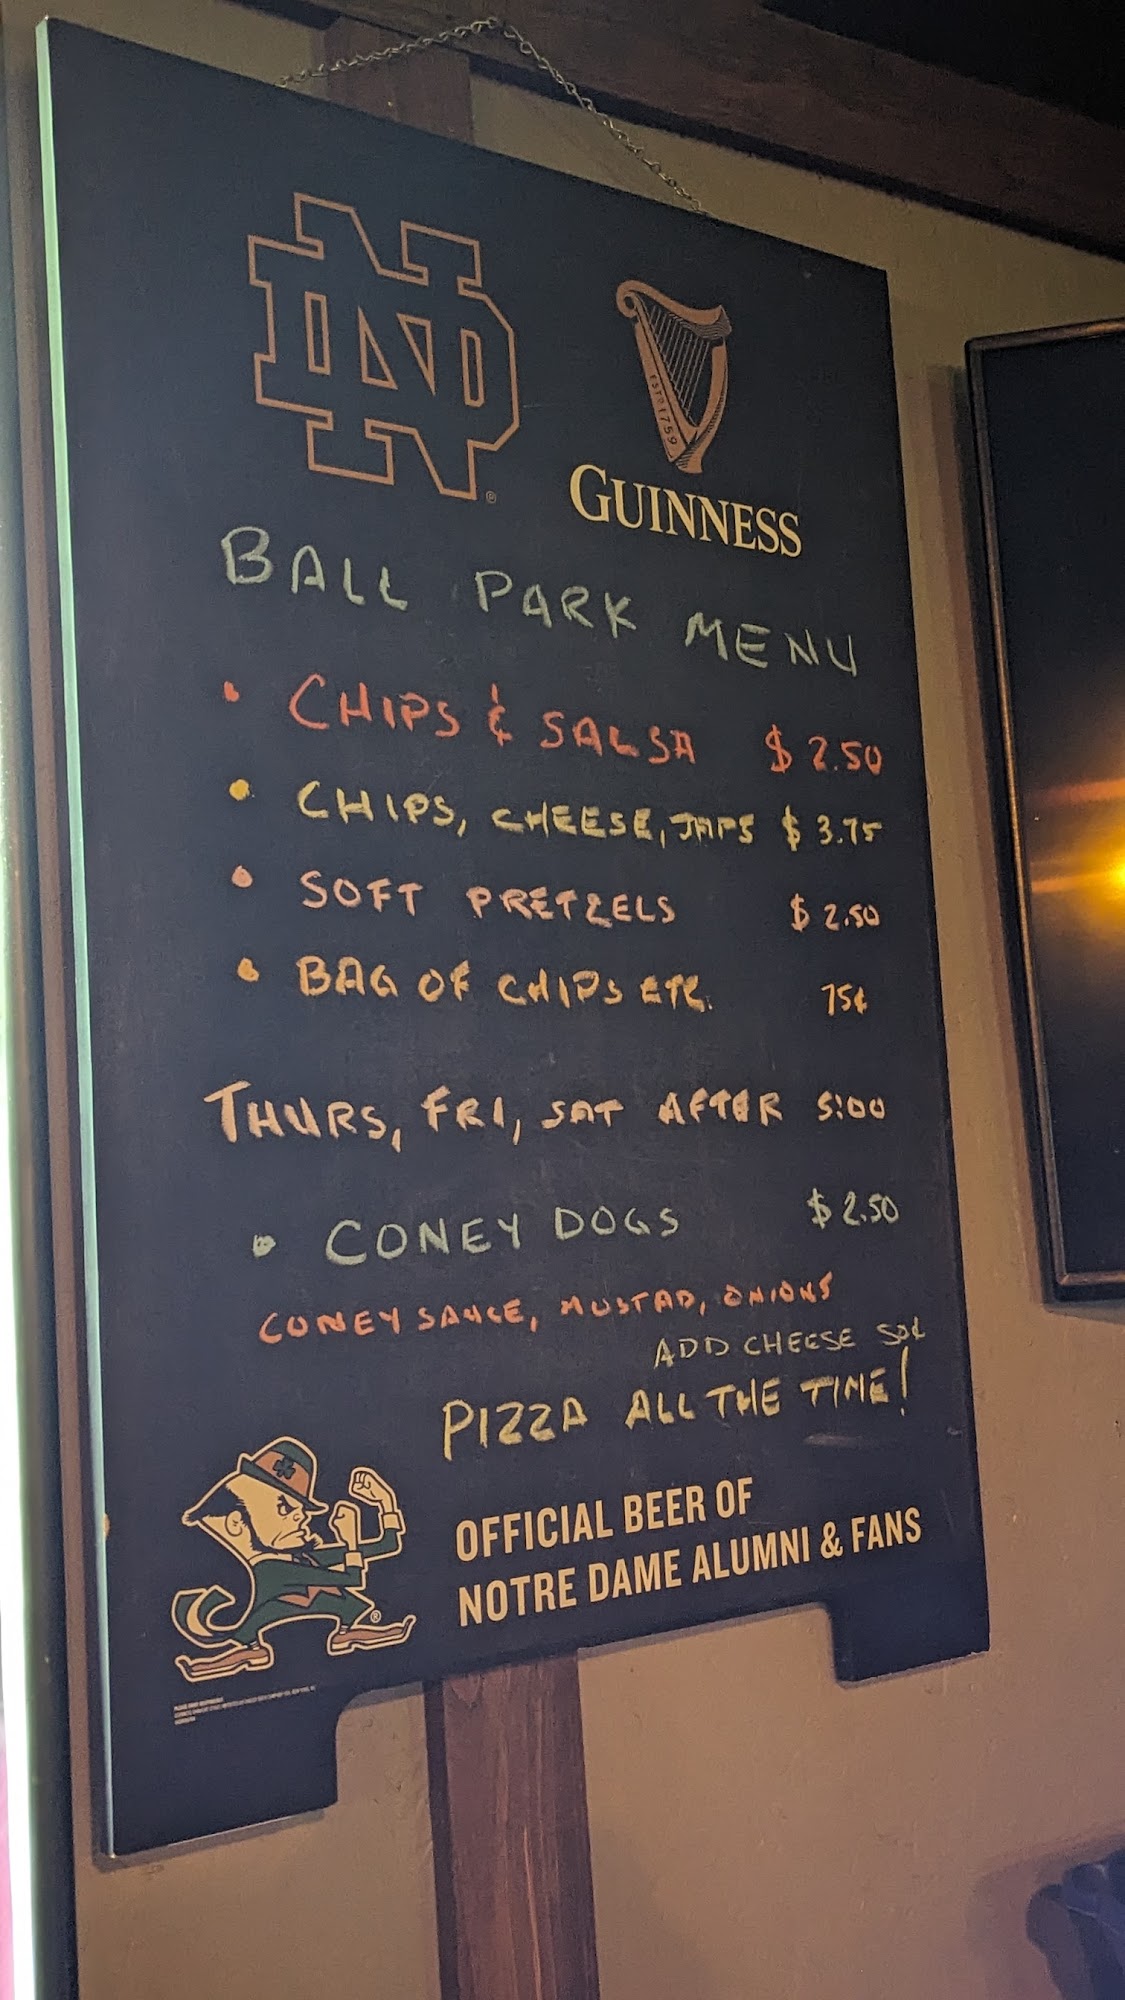 ND
EST.D.1759
GUINNESS
BALL PARK MENU
• CHIPS & SALSA $2.50
• CHIPS, CHEESE, JAPS $3.75
• SOFT PRETZELS $2.50
• BAG OF CHIPS ETC. 75¢
THURS, FRI, SAT AFTER 5:00
• CONEY DOGS $2.50
CONEY SAUCE, MUSTAD, ONIONS
ADD CHEESE 50¢
PIZZA ALL THE TIME!
OFFICIAL BEER OF
NOTRE DAME ALUMNI & FANS